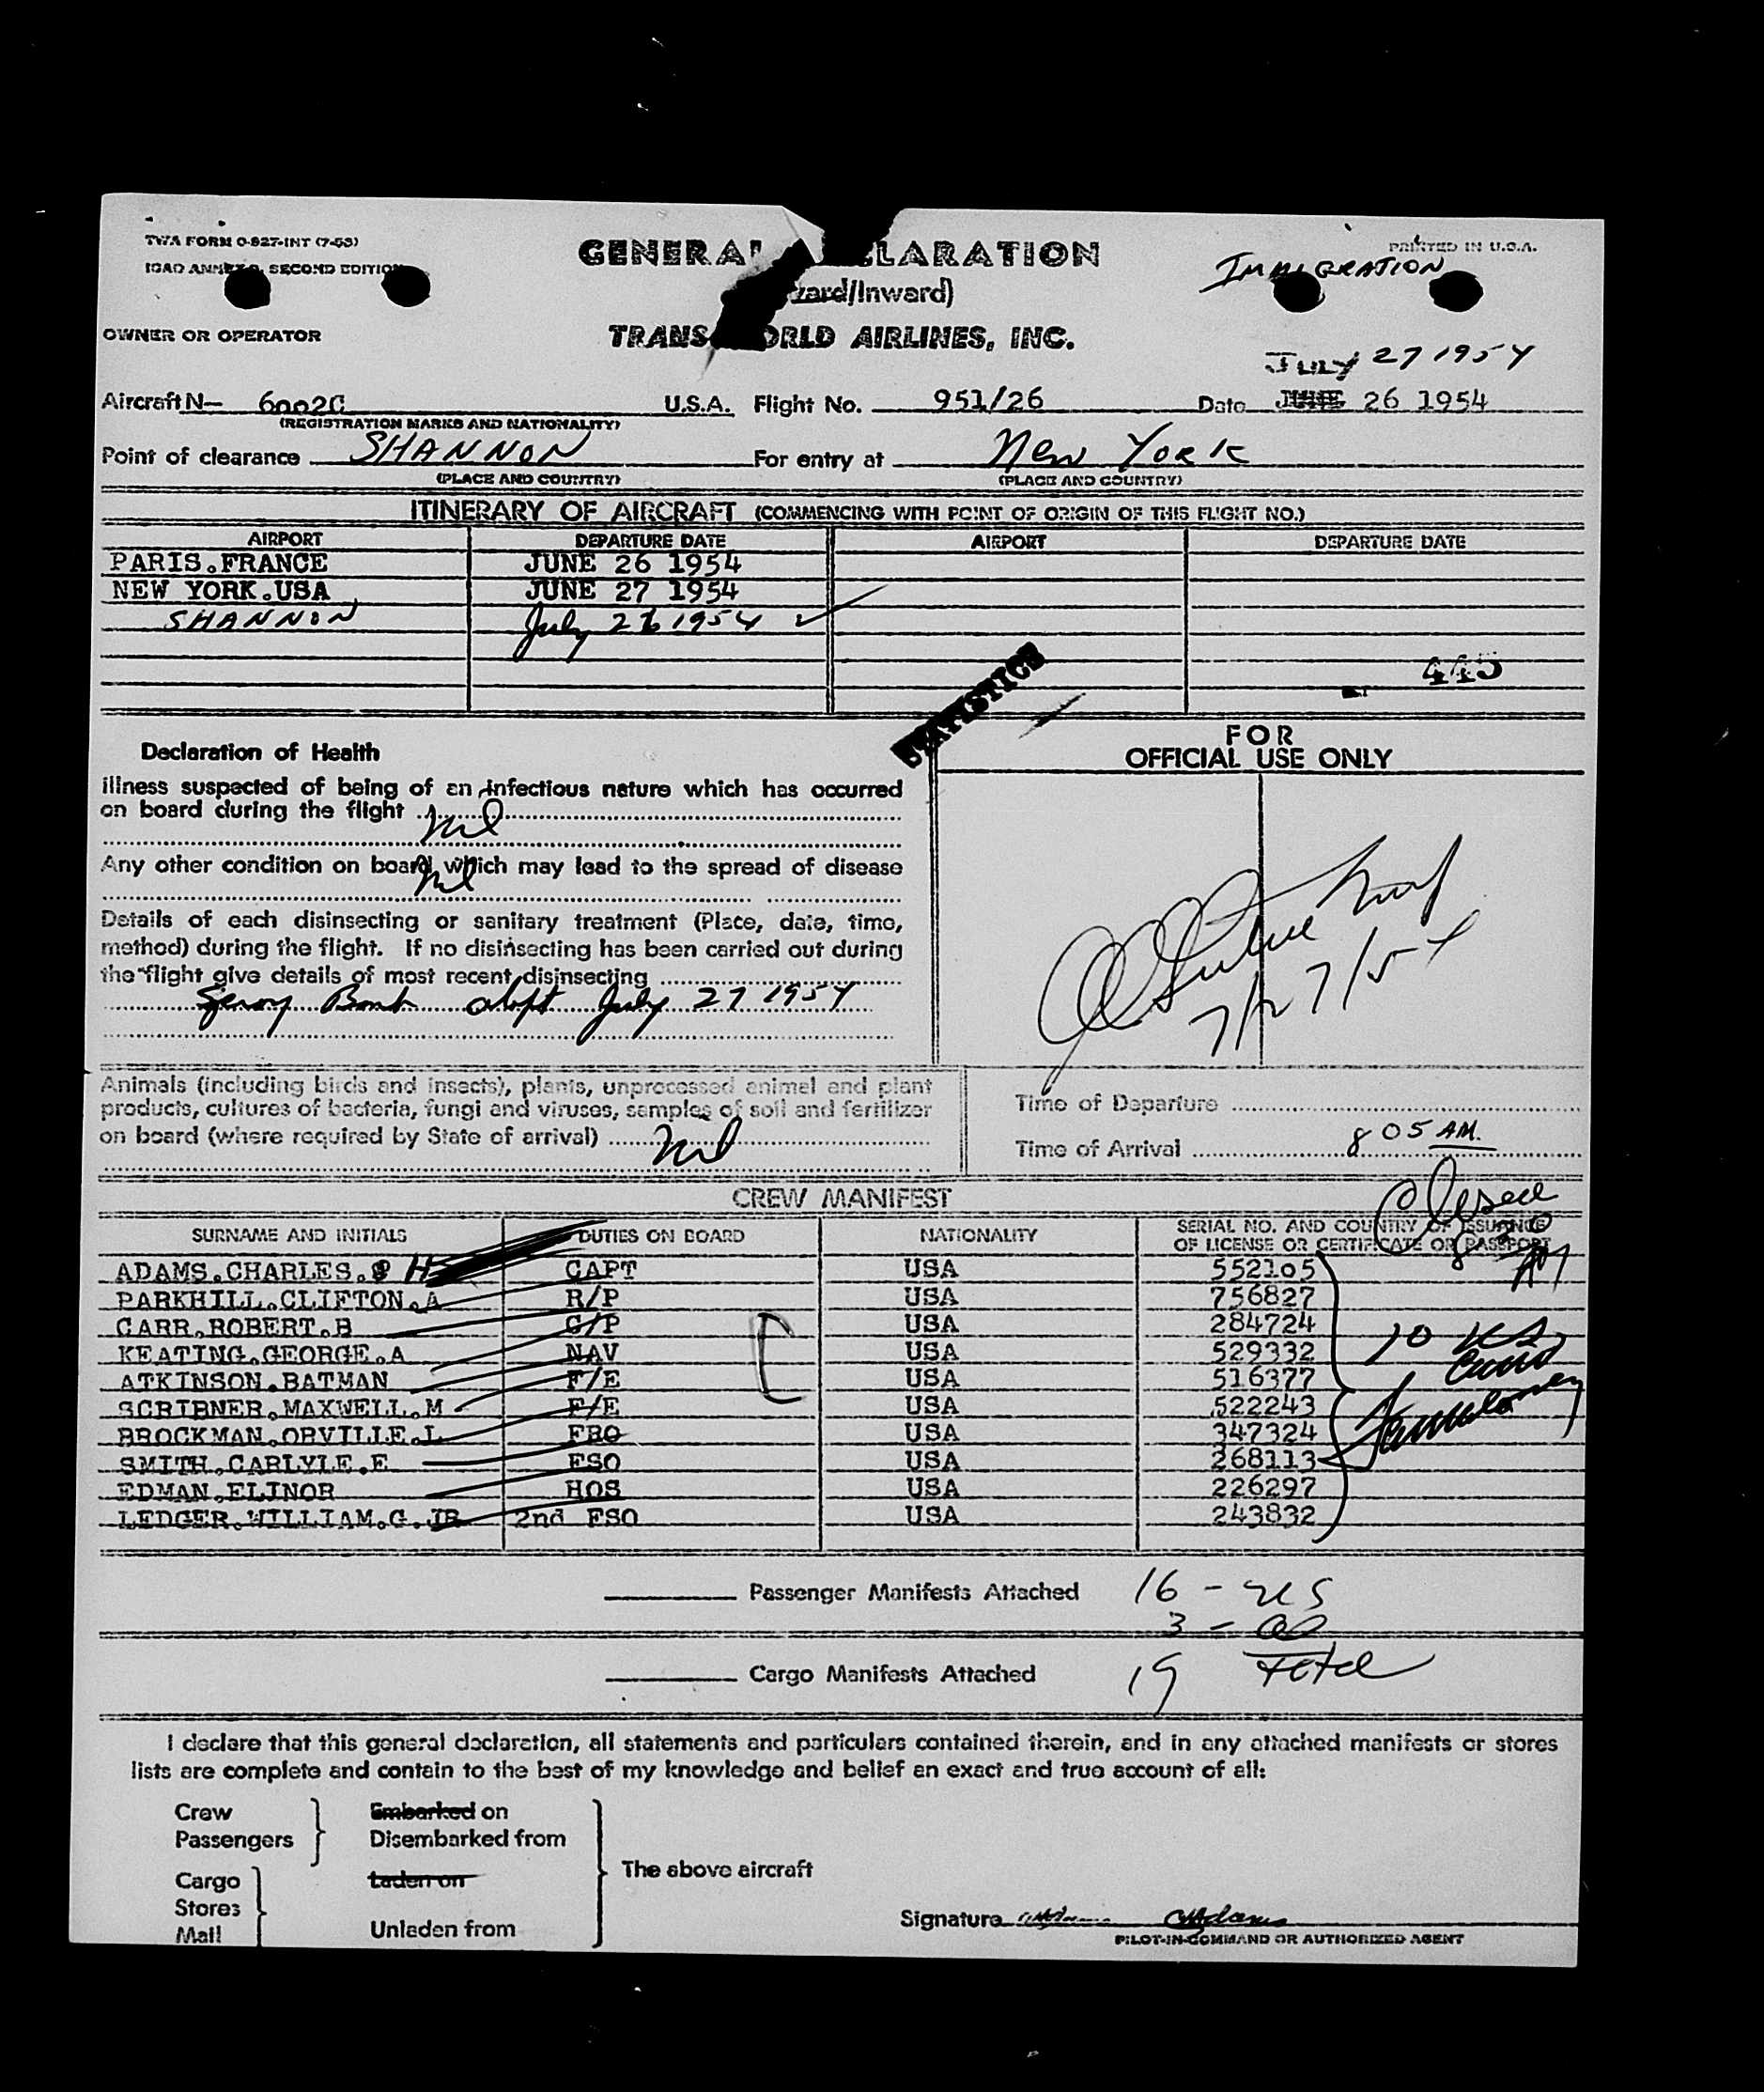 TWA FORM O-827-INT (7-53)
PRINTED IN U.S.A.
SECOND EDITION
IMMIGRATION
GENERAL LARATION
ward/Inward)
OWNER OR OPERATOR
TRANS WORLD AIRLINES, INC.
July 27 1954
Aircraft N- 6002C U.S.A. Flight No. 951/26 Date JUNE 26 1954
(REGISTRATION MARKS AND NATIONALITY)
Point of clearance SHANNON For entry at New York
(PLACE AND COUNTRY) (PLACE AND COUNTRY)
ITINERARY OF AIRCRAFT (COMMENCING WITH POINT OF ORIGIN OF THIS FLIGHT NO.)
AIRPORT DEPARTURE DATE AIRPORT DEPARTURE DATE
PARIS.FRANCE JUNE 26 1954
NEW YORK.USA JUNE 27 1954
SHANNON July 1954
445
STATISTICS
FOR
OFFICIAL USE ONLY
Declaration of Health
illness suspected of being of an infectious nature which has occurred
on board during the flight Nil
Any other condition on board which may lead to the spread of disease
Nil
Details of each disinsecting or sanitary treatment (Place, date, time,
method) during the flight. If no disinsecting has been carried out during
the flight give details of most recent disinsecting
Bomb July 27 1954
7/27/54
Animals (including birds and insects), plants, unprocessed animal and plant
products, cultures of bacteria, fungi and viruses, samples of soil and fertilizer
on board (where required by State of arrival) Nil
Time of Departure
Time of Arrival 8 05 AM.
CREW MANIFEST
SURNAME AND INITIALS DUTIES ON BOARD NATIONALITY SERIAL NO. AND COUNTRY OF ISSUANCE
OF LICENSE OR CERTIFICATE OR PASSPORT
ADAMS.CHARLES. H CAPT USA 552105
PARKHILL.CLIFTON.A R/P USA 756827
CARR.ROBERT.B C/P USA 284724
KEATING.GEORGE.A NAV USA 529332
ATKINSON.BATMAN F/E USA 516377
SCRIBNER.MAXWELL.M F/E USA 522243
BROCKMAN.ORVILLE.L FRO USA 347324
SMITH.CARLYLE.E FSO USA 268113
EDMAN.ELINOR HOS USA 226297
LEDGER.WILLIAM.G.JR 2nd FSO USA 243832
10 US
Passenger Manifests Attached 16 - US
3 -
Cargo Manifests Attached 19 Total
I declare that this general declaration, all statements and particulars contained therein, and in any attached manifests or stores
lists are complete and contain to the best of my knowledge and belief an exact and true account of all:
Crew Embarked on
Passengers Disembarked from
The above aircraft
Cargo Laden on
Stores
Mail Unladen from
Signature CHAdams
PILOT-IN-COMMAND OR AUTHORIZED AGENT